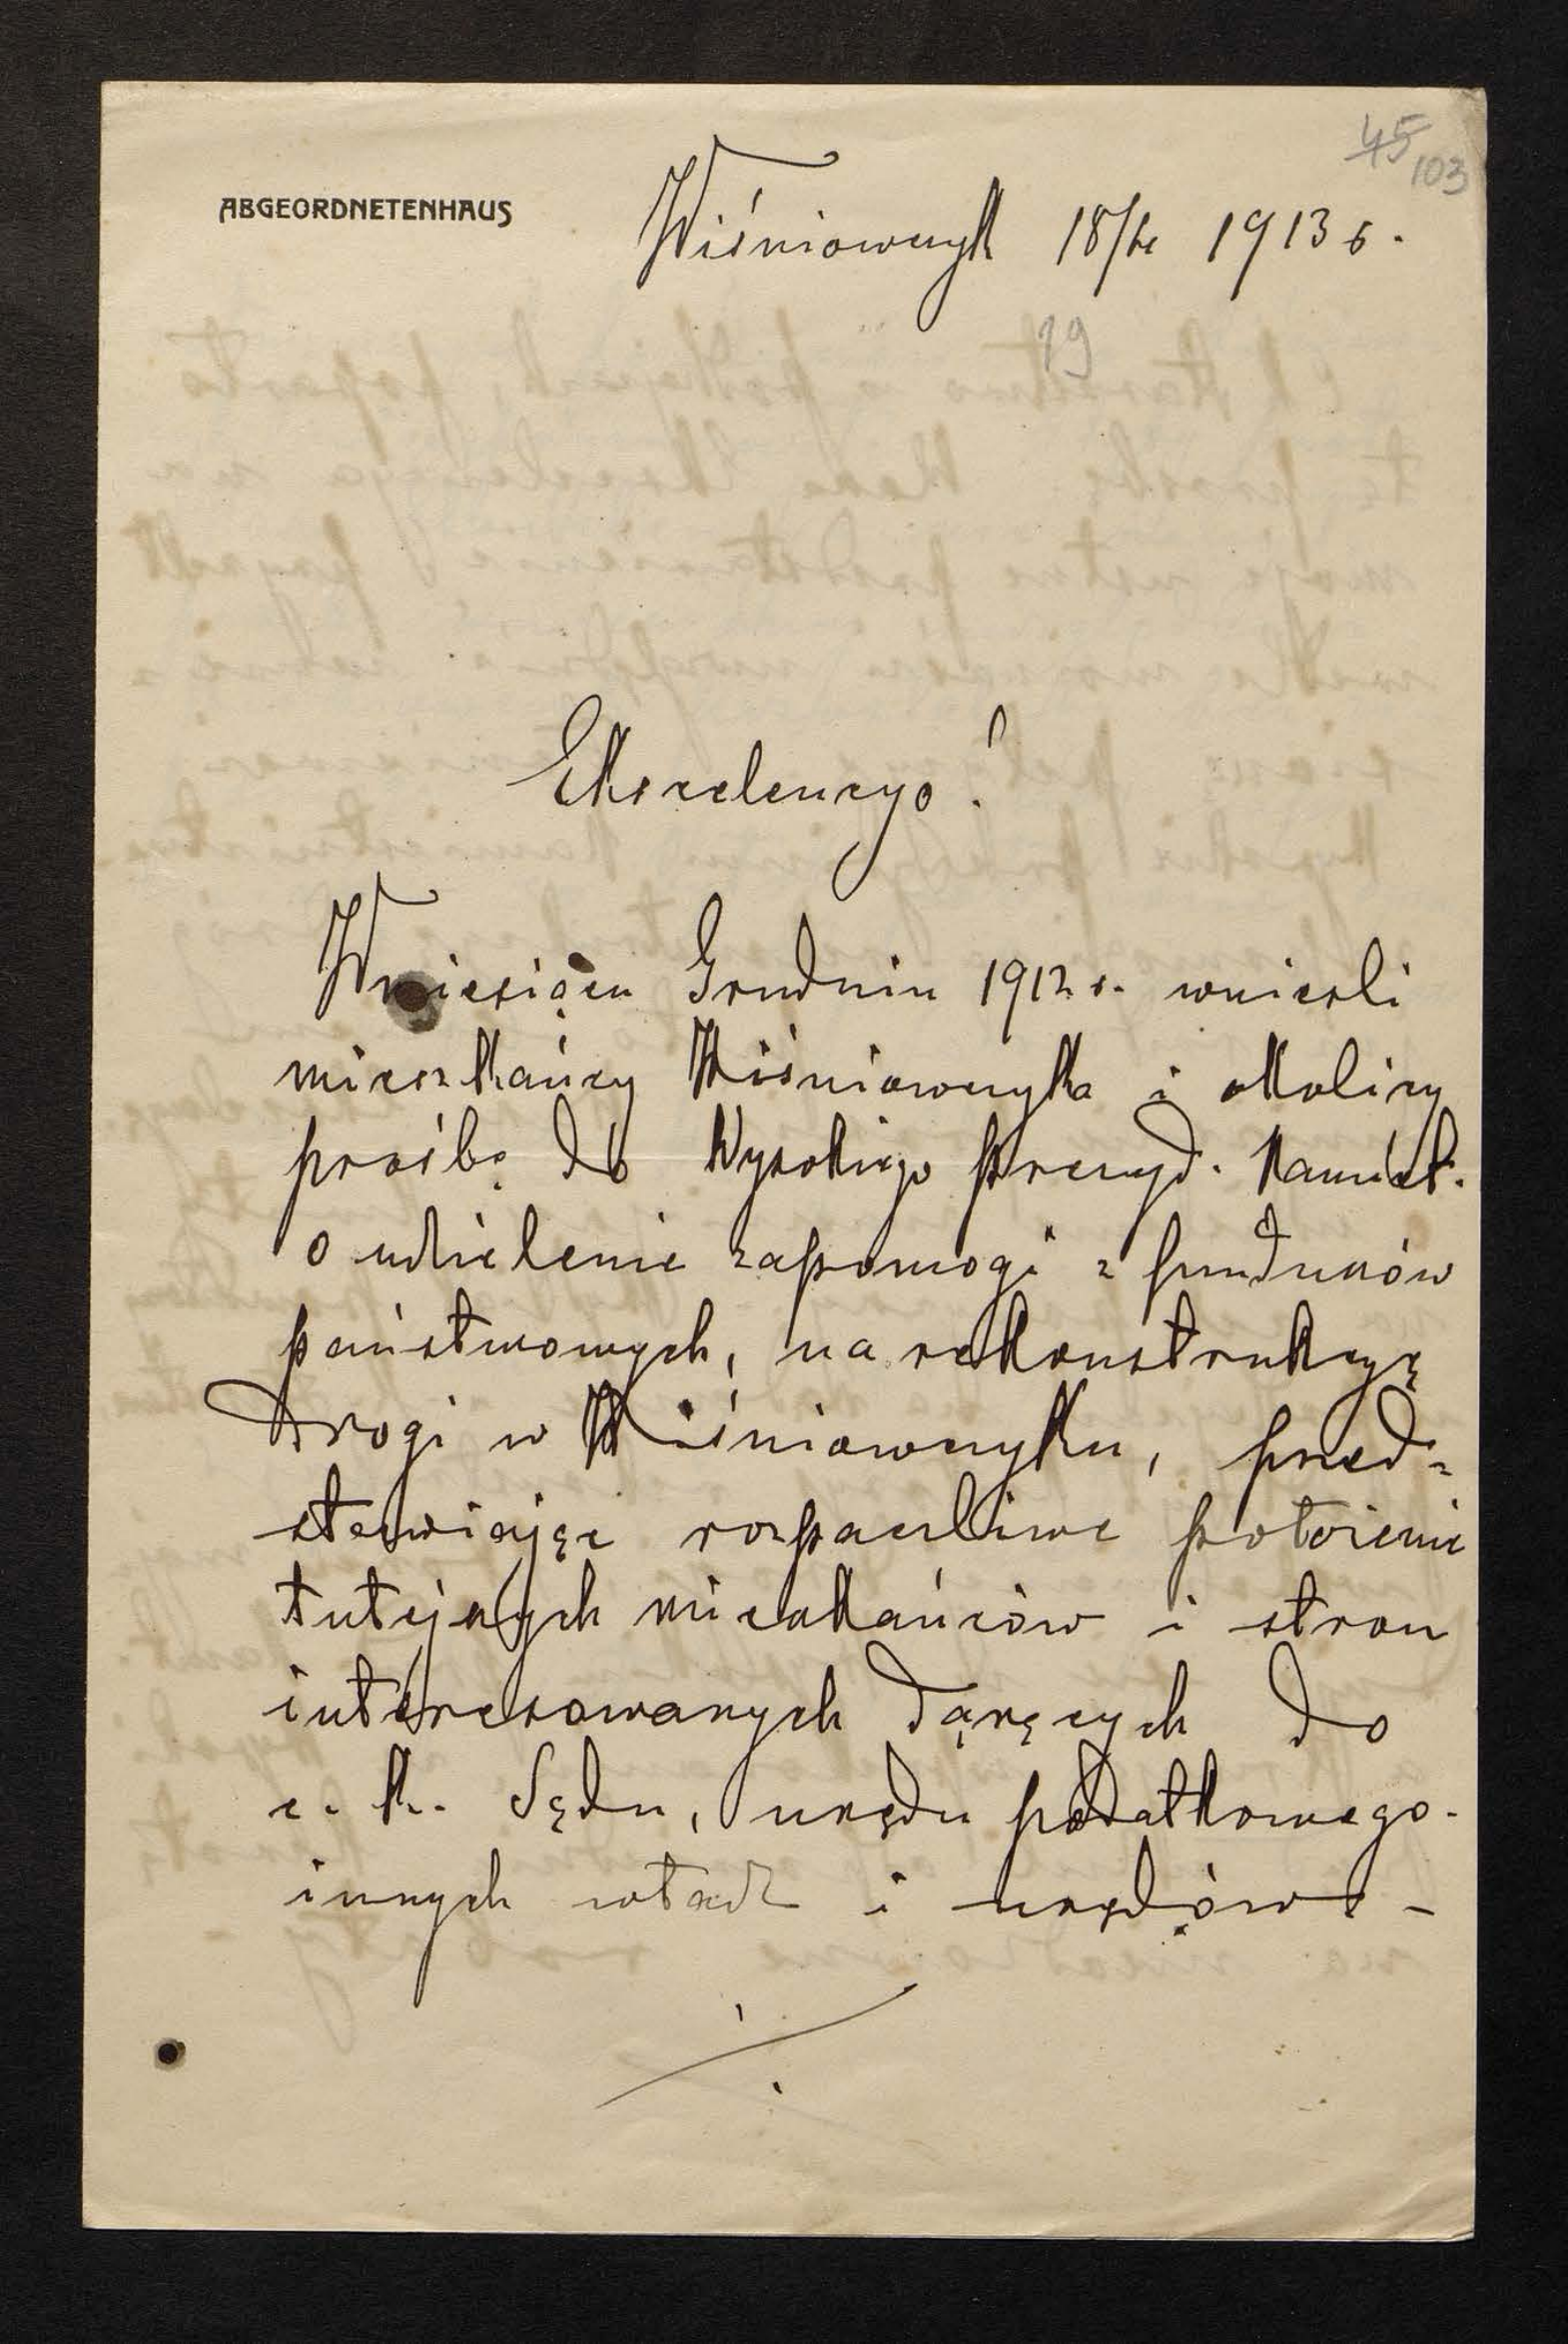 45
103
ABGEORDNETENHAUS
Wiśniowczyk 1913 r.
19
Ekscelencyo!
W miesiącu Grudniu 1912 r. wnieśli
mieszkańcy Wiśniowczyka i okolicy
prośbę do Wysokiego Prezyd. Namiest.
o udzielenie zapomogi z funduszów
państwowych, na rekonstrukcyę
drogi w Wiśniowczyku, przed-
stawiając rozpaczliwe położenie
tutejszych mieszkańców i stron
interesowanych dążących do
c. k. Sądu, urzędu podatkowego
innych władz i urzędów -